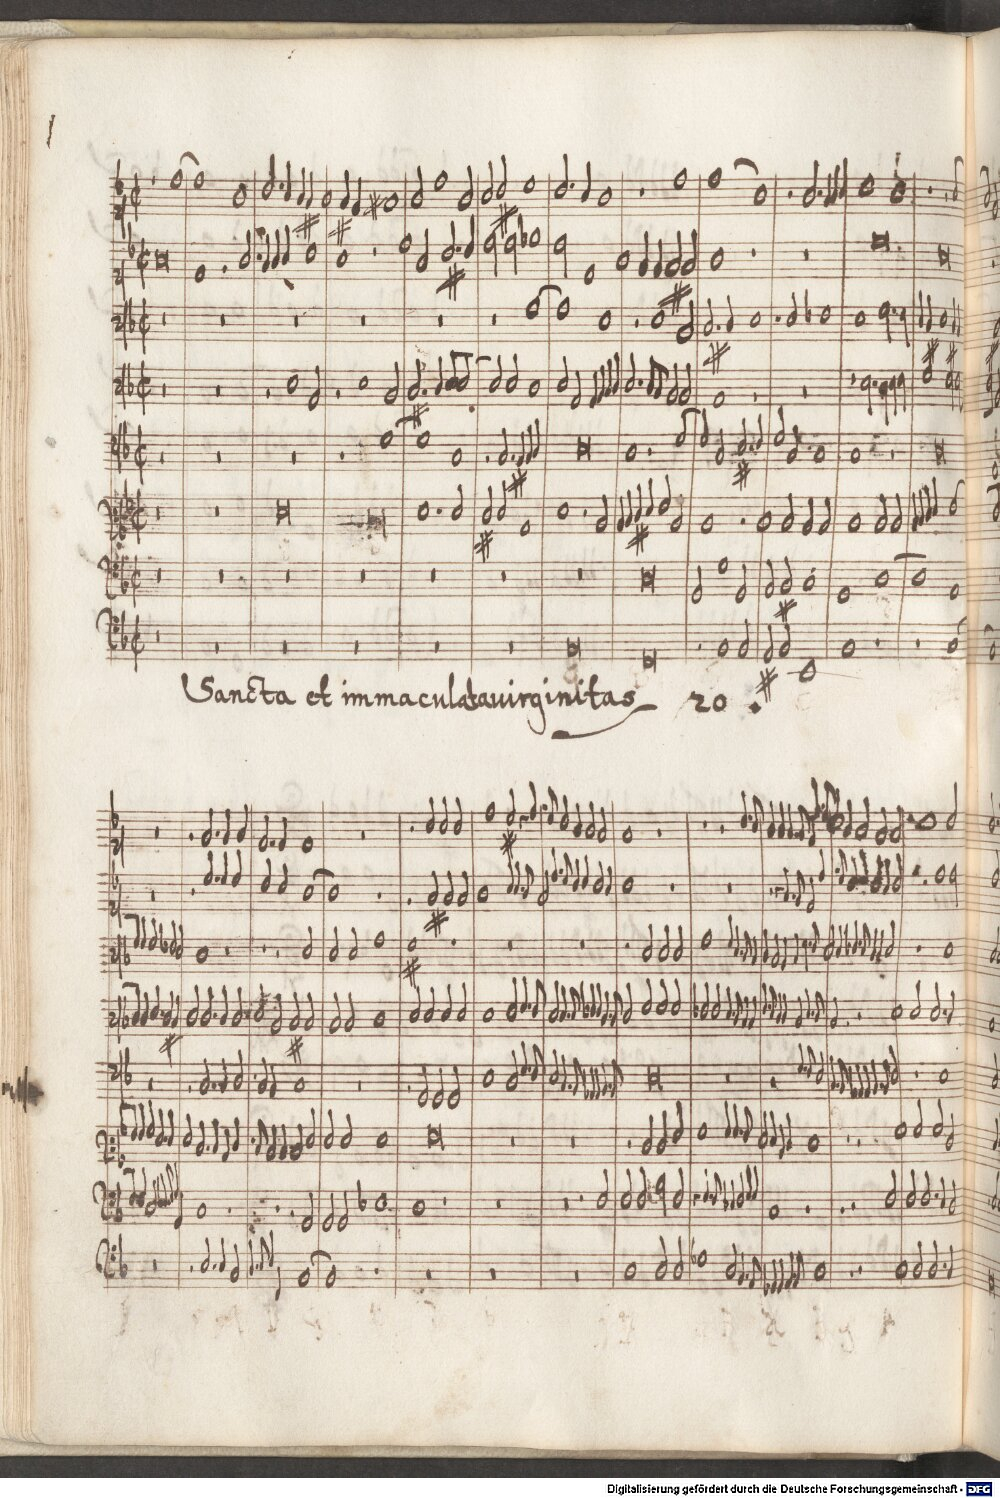 Sancta et immaculatavirginitas 20.
Digitalisierung gefördert durch die Deutsche Forschungsgemeinschaft - DFG